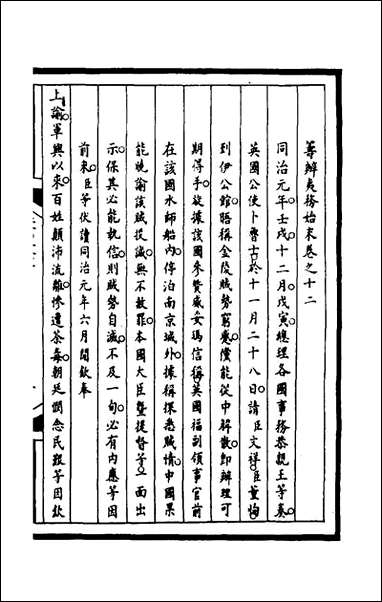 籌辦夷務始末卷之十二
同治元年壬戌十二月戊寅總理各國事務恭親王等奏
英國公使卜魯士於十一月二十八日請臣文祥臣董恂
到伊公館晤稱金陵賊勢窮蹙儻能從中解散即辦理可
期得手旋據該國參贊威妥瑪信稱英國福副領事官前
在該國水師船內停泊南京城外據稱探悉賊情中國果
能曉諭該賊投誠無不赦罪本國大臣暨提督等一面出
示保其必能執信則賊勢自滅不及一旬必有內應等因
前來臣等伏讀同治元年六月間欽奉
上諭軍興以來百姓顛沛流離慘遭荼毒朝廷憫念民艱等因欽